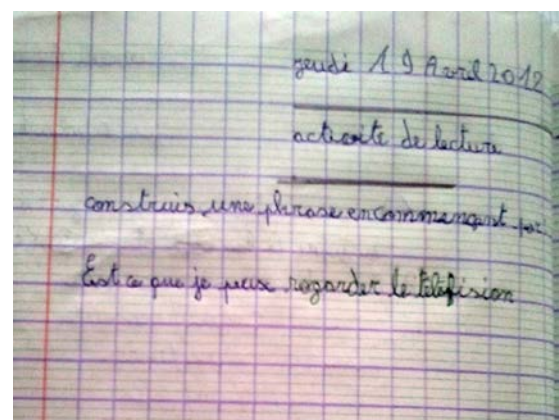 jeudi 19 Avril 2012
activité de lecture
construis une phrase en commençant par
Est ce que je peux regarder le téléfision